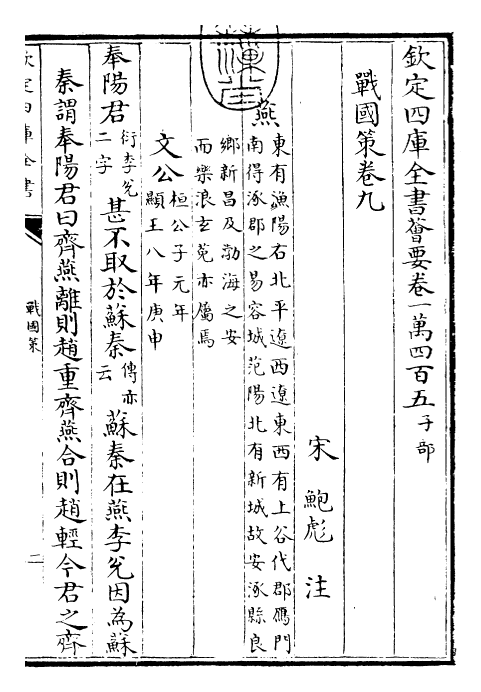 欽定四庫全書薈要卷一萬四百五子部
戰國策卷九
宋 鮑彪 注
燕
東有漁陽右北平遼西遼東西有上谷代郡鴈門
南得涿郡之易容城范陽北有新城故安涿縣良
鄉新昌及勃海之安
而樂浪玄菟亦屬焉
文公
桓公子元年
顯王八年庚申
奉陽君
衍李兌
二字
甚不取於蘇秦
傳亦
云
蘇秦在燕李兌因為蘇
秦謂奉陽君曰齊燕離則趙重齊燕合則趙輕今君之齊
欽定四庫全書
戰國策